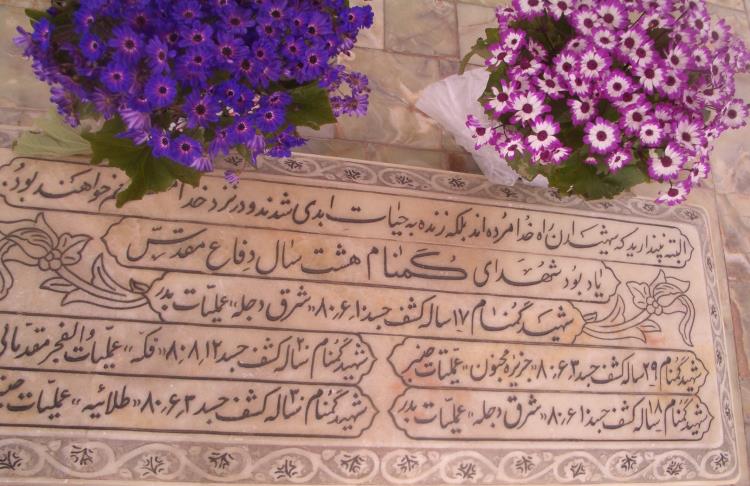 البته نپندارید که شهیدان راه خدا مرده‌اند بلکه زنده به حیات ابدی شدند و در نزد خدا خواهند بود
یادبود شهدای گمنام هشت سال دفاع مقدس
شهید گمنام ۱۷ ساله کشف جسد ۸۰،۶،۱۰ «شرق دجله» عملیات بدر
شهید گمنام ۲۹ ساله کشف جسد ۸۰،۶،۳ «جزیره مجنون» عملیات خیبر
شهید گمنام ۲۰ ساله کشف جسد ۸۰،۸،۱۲ «فکه» عملیات والفجر مقدماتی
شهید گمنام ۱۸ ساله کشف جسد ۸۰،۶،۱۰ «شرق دجله» عملیات بدر
شهید گمنام ۲۰ ساله کشف جسد ۸۰،۶،۳ «طلائیه» عملیات